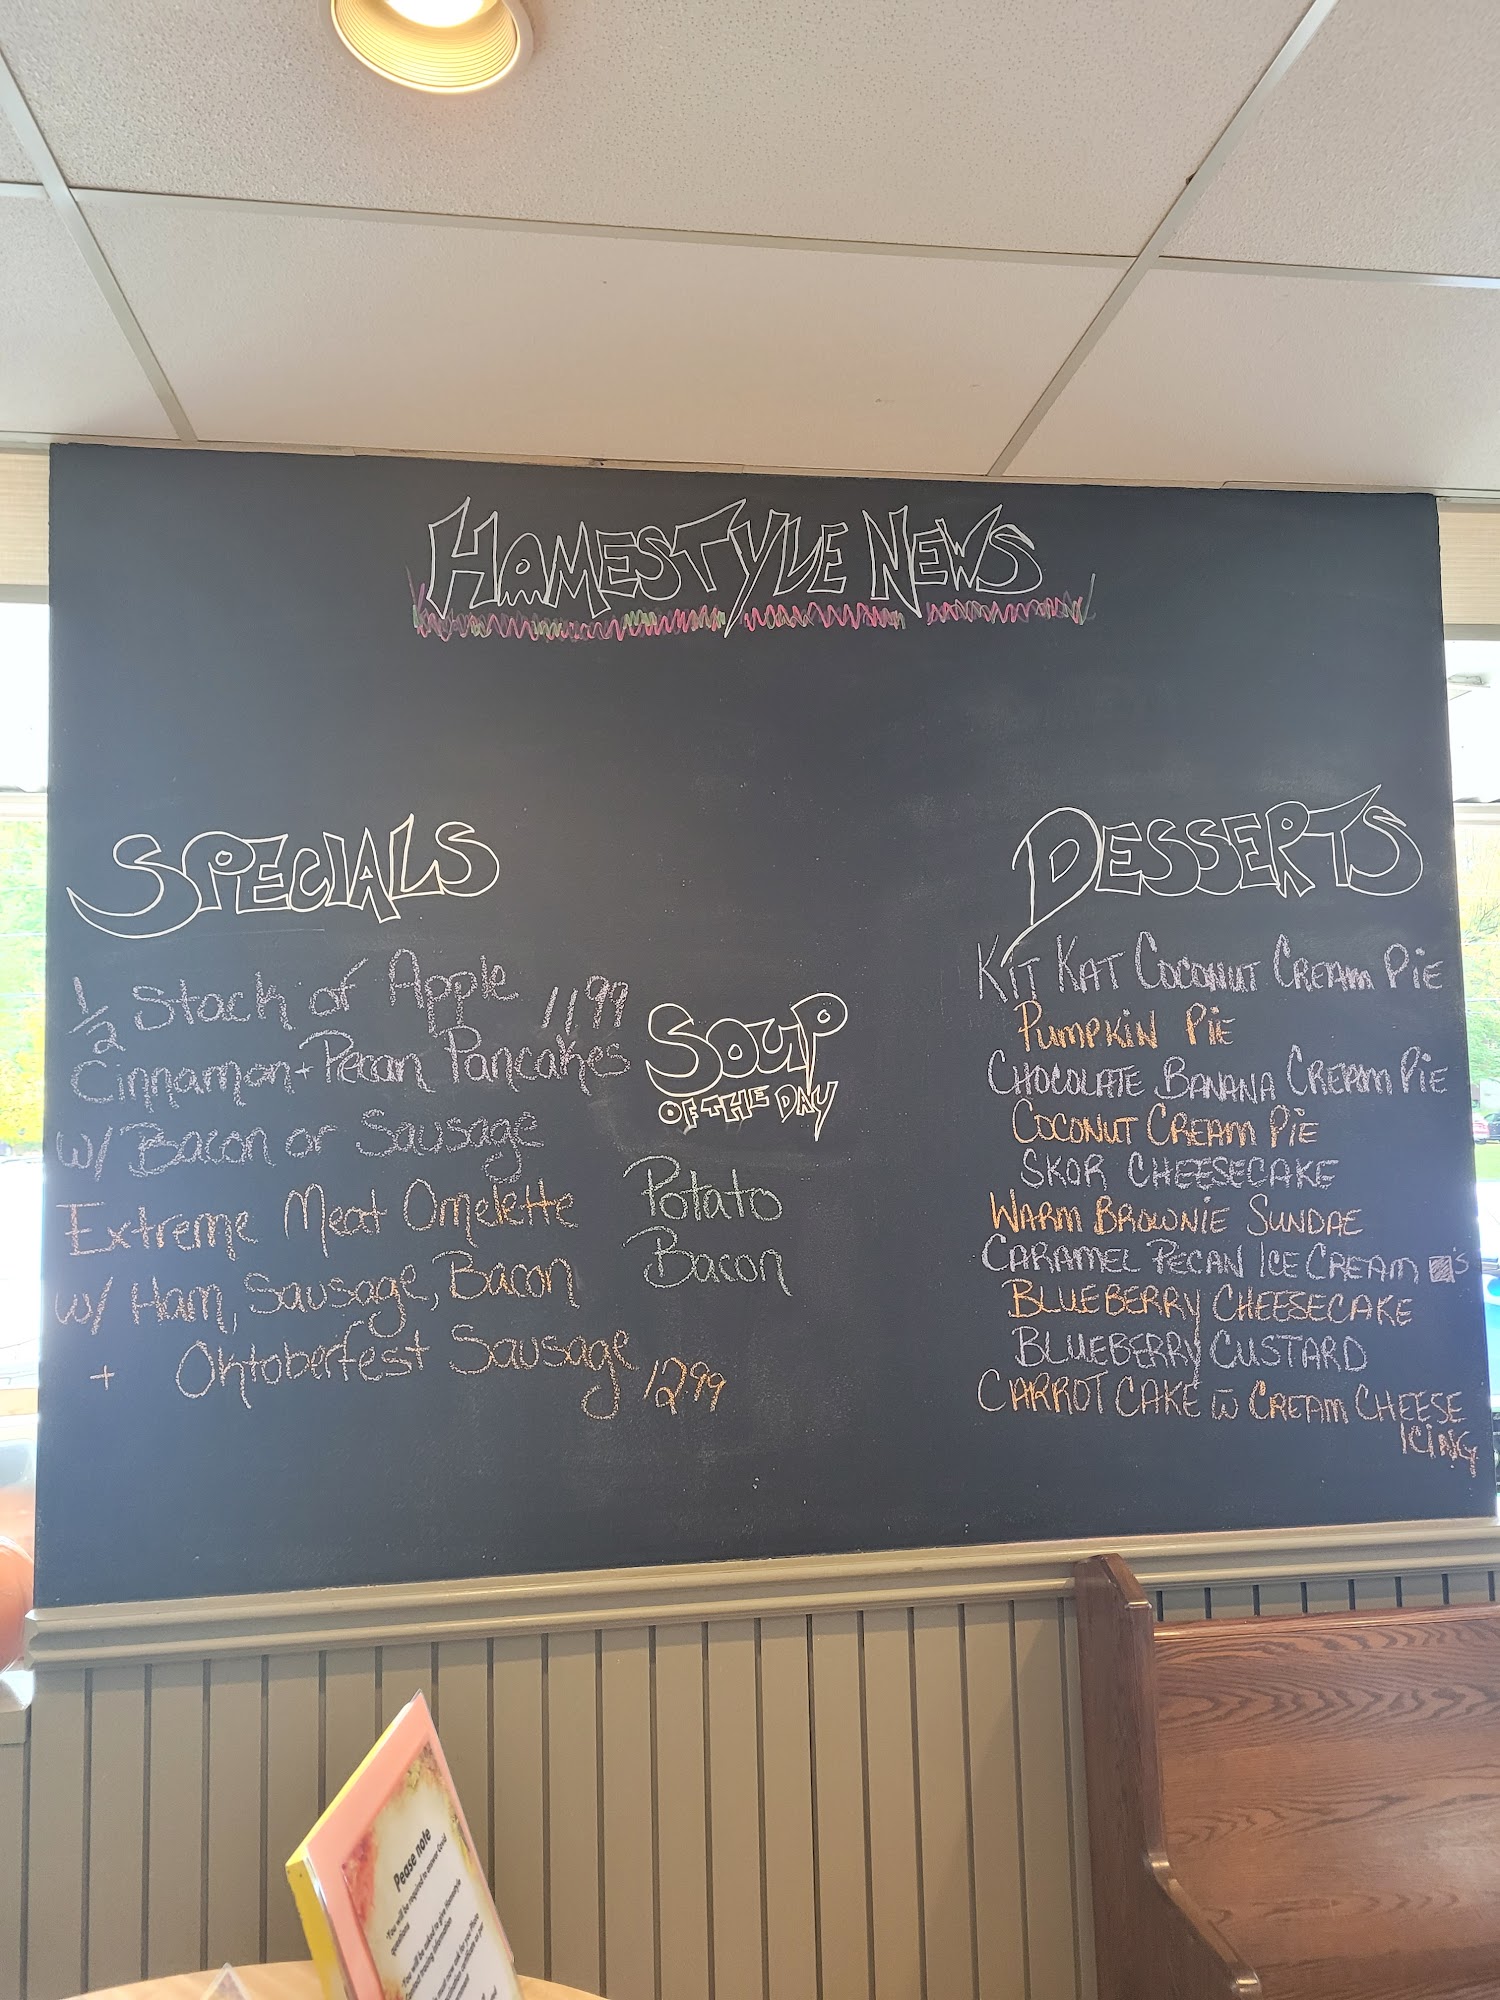 HOMESTYLE NEWS
SPECIALS
1/2 Stack of Apple 11.99
Cinnamon + Pecan Pancakes
w/ Bacon or Sausage
Extreme Meat Omelette
w/ Ham, Sausage, Bacon
+ Oktoberfest Sausage 12.99
SOUP
OF THE DAY
Potato
Bacon
DESSERTS
KIT KAT COCONUT CREAM PIE
PUMPKIN PIE
CHOCOLATE BANANA CREAM PIE
COCONUT CREAM PIE
SKOR CHEESECAKE
WARM BROWNIE SUNDAE
CARAMEL PECAN ICE CREAM ■'S
BLUEBERRY CHEESECAKE
BLUEBERRY CUSTARD
CARROT CAKE w̅ CREAM CHEESE
ICING
Pease note
You will be required to answer Covid
questions
You will be asked to give Homestyle